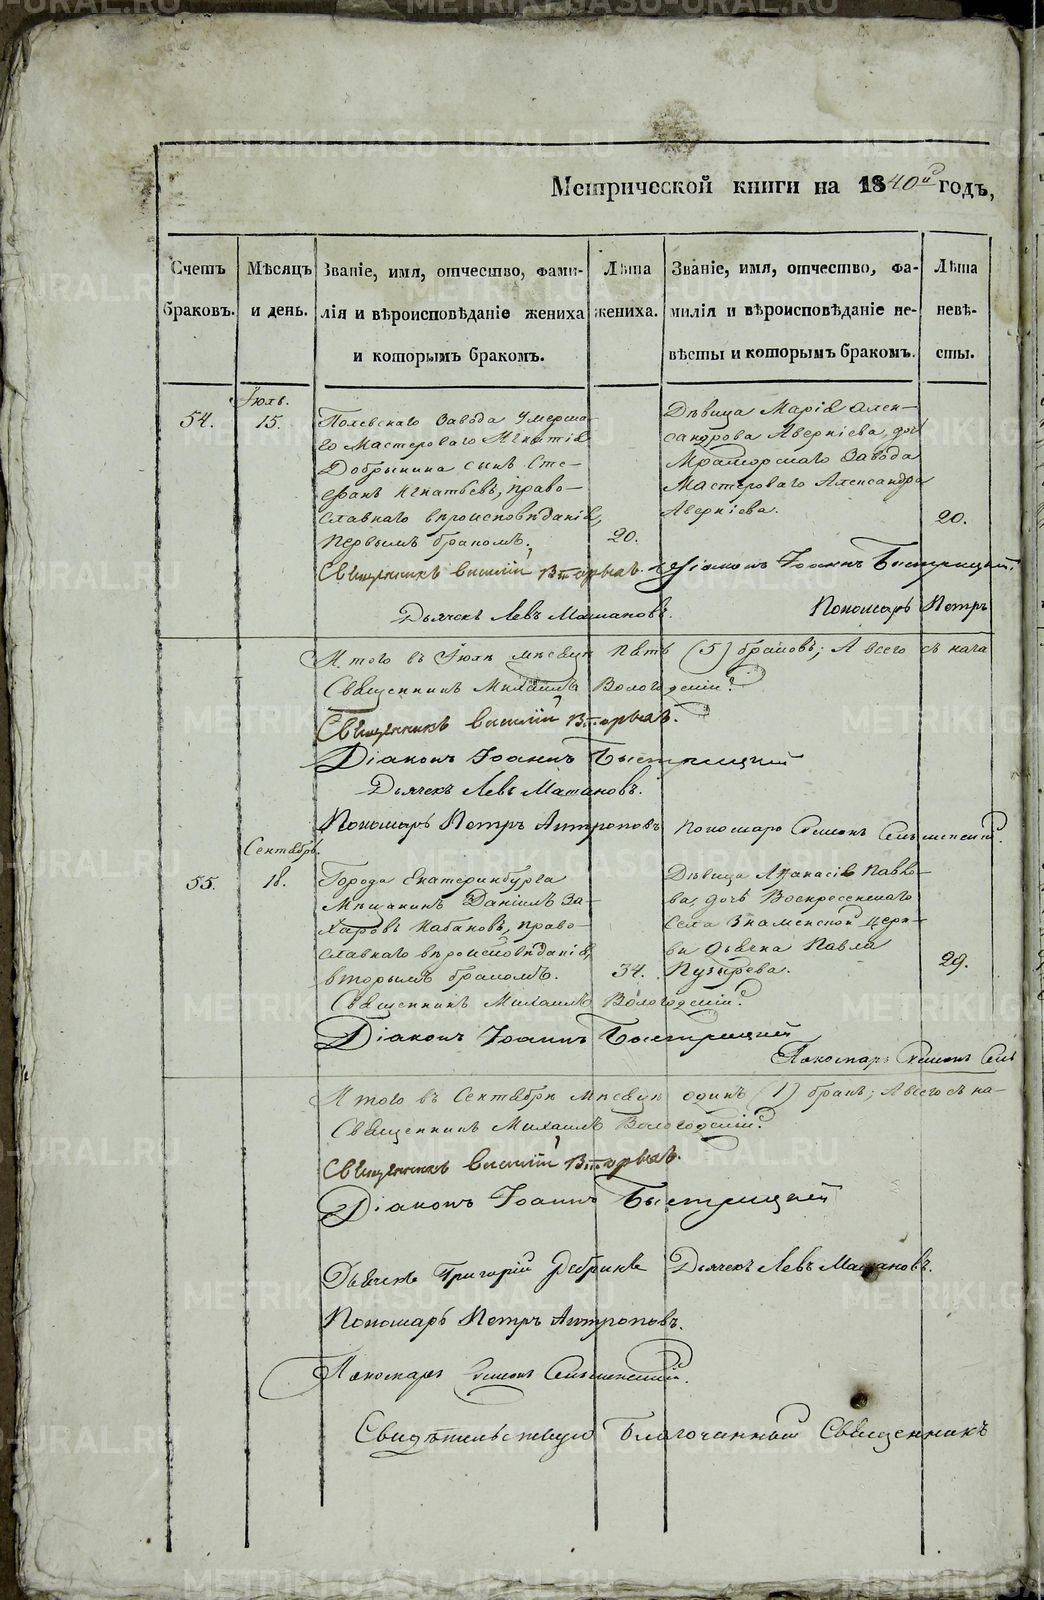 Метрической книги на 1840й годъ,
Счетъ браковъ.
Мѣсяцъ и день.
Званіе, имя, отчество, фами-
лія и вѣроисповѣданіе жениха
и которымъ бракомъ.
Лѣта жениха.
Званіе, имя, отчество, фа-
милія и вѣроисповѣданіе не-
вѣсты и которымъ бракомъ.
Лѣта невѣ-
сты.
Іюль.
54.
15.
Полевскаго Завода Умерша-
го Мастероваго Игнатія
Добрынина сынъ Сте-
фанъ Игнатьевъ, право-
славнаго вѣроисповѣданія,
первымъ бракомъ.
20.
Дѣвица Марія Алек-
сандрова Аверкіева, дочь
Мраморскаго Завода
Мастероваго Александра
Аверкіева.
20.
Священникъ Василій Вторыхъ. Діаконъ Іоаннъ Быстрицкій.
Дьячекъ Левъ Машановъ. Пономарь Петръ
Итого въ Іюлѣ мѣсяцѣ пять (5) браковъ; А всего съ нача
Священникъ Михаилъ Вологодскій.
Священникъ Василій Вторыхъ.
Діаконъ Іоаннъ Быстрицкій
Дьячекъ Левъ Машановъ.
Пономарь Петръ Антроповъ Пономарь Симеонъ
Сентябрь.
55.
18.
Города Екатеринбурга
Мѣщанинъ Даніилъ За-
харовъ Кабановъ, право-
славнаго вѣроисповѣданія,
вторымъ бракомъ.
34.
Дѣвица Афанасія Павло-
ва, дочь Воскресенскаго
Села Знаменской церк-
ви дьячка Павла
Пузырева.
29.
Священникъ Михаилъ Вологодскій.
Діаконъ Іоаннъ Быстрицкій
Пономарь Симеонъ
Итого въ Сентябрѣ мѣсяцѣ одинъ (1) бракъ; А всего съ на-
Священникъ Михаилъ Вологодскій.
Священникъ Василій Вторыхъ.
Діаконъ Іоаннъ Быстрицкій
Дьячекъ Григорій Дьячекъ Левъ Машановъ.
Пономарь Петръ Антроповъ.
Пономарь Симеонъ
Свидѣтельствую Благочинный Священникъ
METRIKI.GASO-URAL.RU